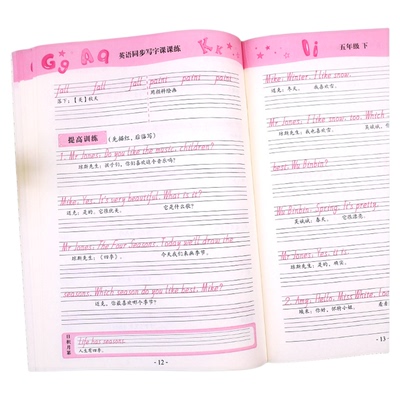 Gg Aa
英语同步写字课课练
Kk
fall fall fall paint paint paint
落下；【美】秋天 用颜料绘画
提高训练 (先描红，后临写)
1. Mr Jones: Do you like the music, children?
琼斯先生：孩子们，你们喜欢这个音乐吗？
Mike: Yes. It's very beautiful. What is it?
迈克：是的，它很优美。 它是什么歌？
Mr Jones: The Four Seasons. Today we'll draw the
琼斯先生：《四季》。 今天我们来画季节。
seasons. Which season do you like best, Mike?
迈克，你最喜欢哪个季节？
日积月累
Life has seasons.
人生有四季。
· 12 ·
Ii
五年级 下
Mike: Winter. I like snow.
迈克：冬天。 我喜欢雪。
Mr Jones: I like snow, too. Which
琼斯先生：我也喜欢雪。
best, Wu Binbin?
Wu Binbin: Spring. It's pretty.
吴斌斌：春天。 它很漂亮。
Mr Jones: Yes, it is.
琼斯先生：是的，确实。
2. Amy: Hello, Miss White.
埃米：你好，怀特小姐。
· 13 ·